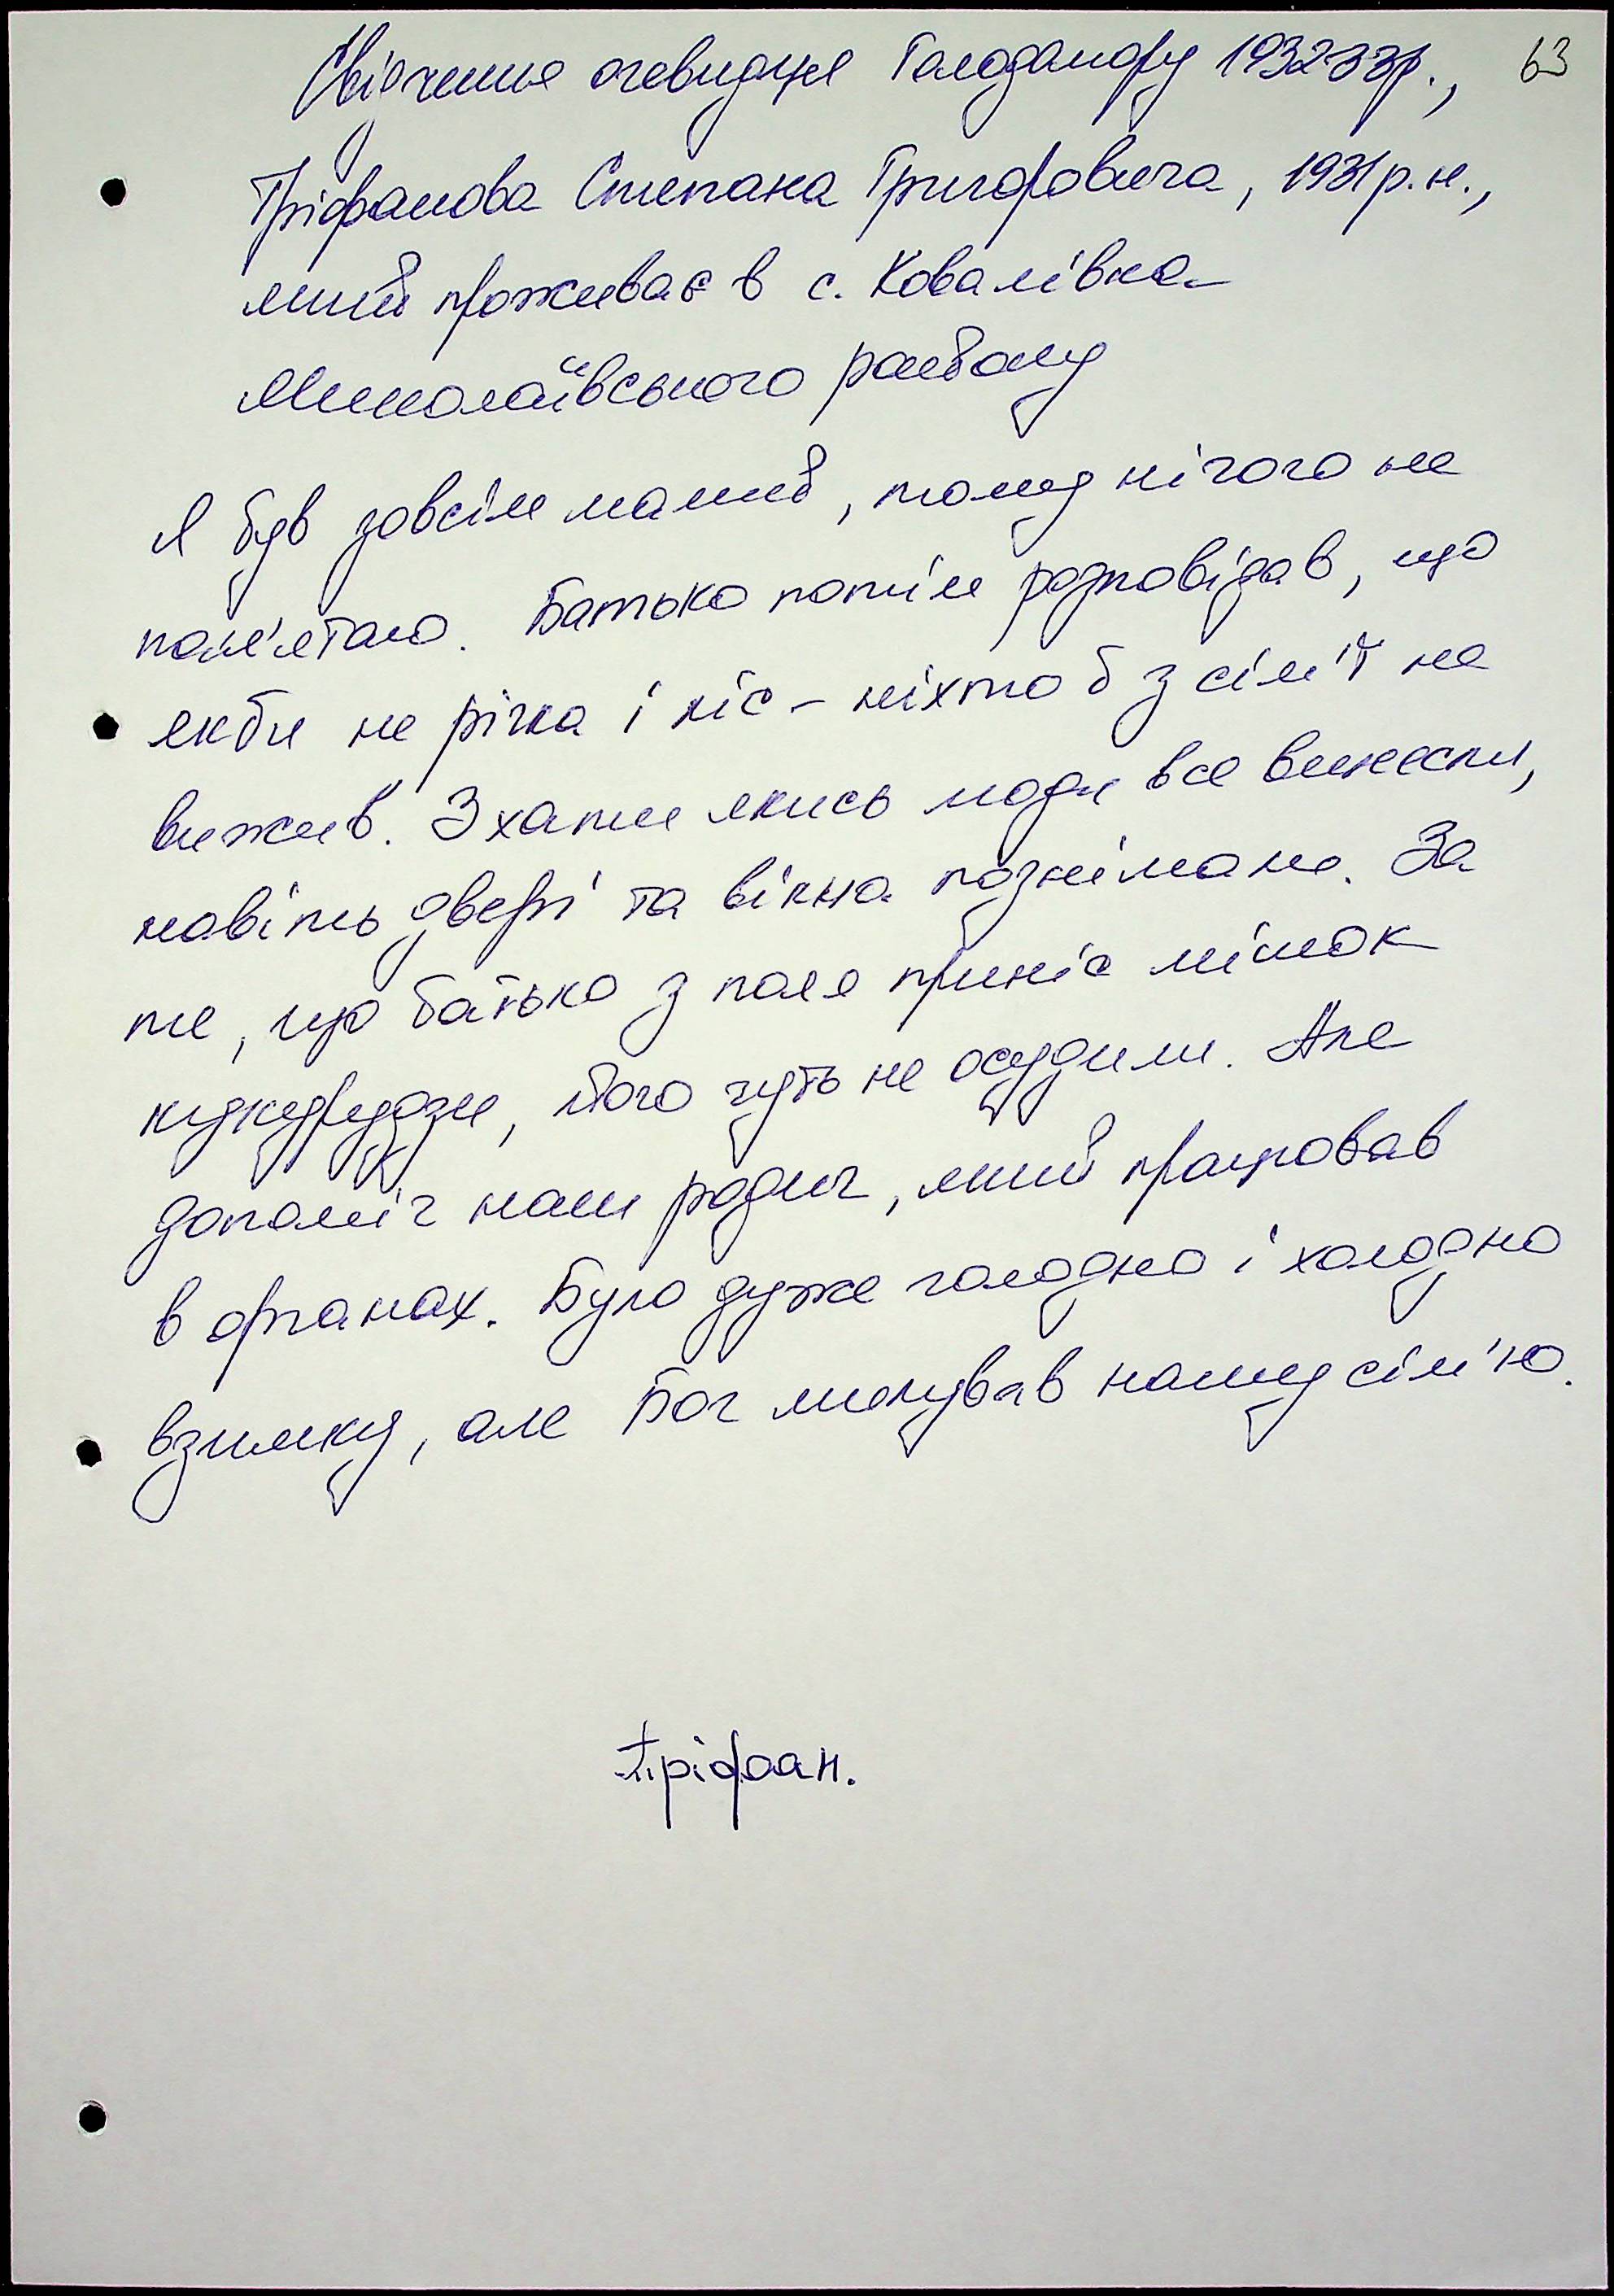 Свідчення очевидця Голодомору 1932-33р., 63
Тріфанова Степана Григоровича, 1931 р.н.,
який проживає в с. Ковалівка
Миколаївського району
Я був зовсім малий, тому нічого не
пам'ятаю. Батько потім розповідав, що
якби не річка і ліс - ніхто б з сім'ї не
вижив. З хати якись люди все винесли,
навіть двері та вікна познімали. За
те, що батько з поля приніс мішок
кукурудзи, його чуть не осудили. Але
допоміг наш родич, який працював
в органах. Було дуже голодно і холодно
взимку, але Бог милував нашу сім'ю.
Тріфан.